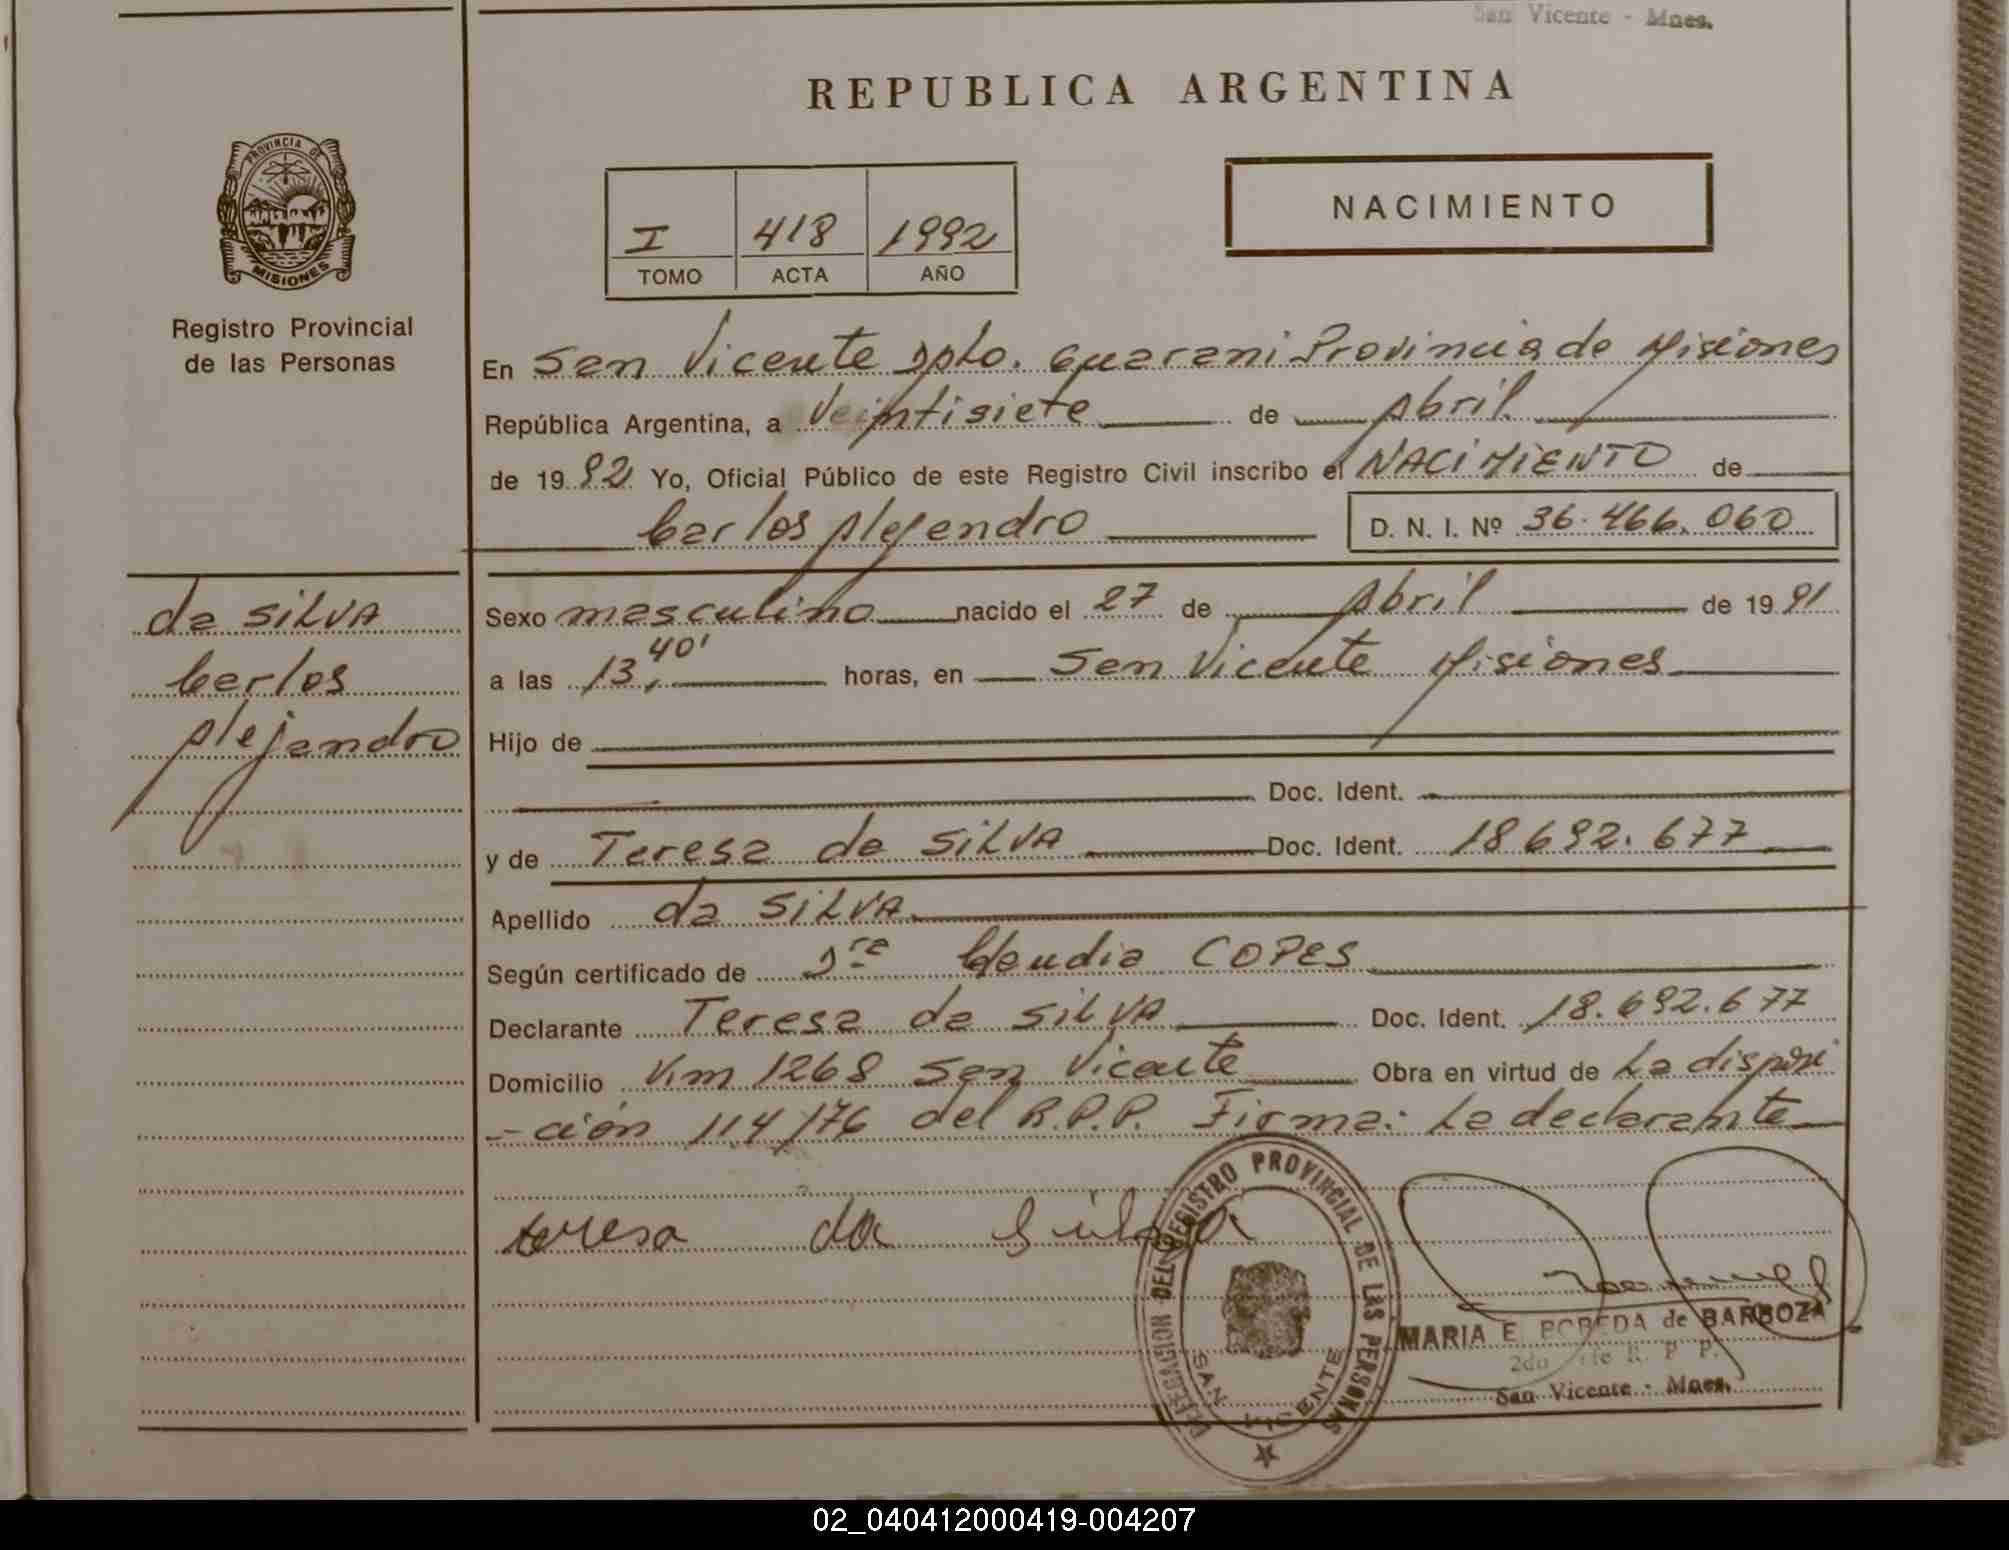 San Vicente - Mnes.
REPUBLICA ARGENTINA
PROVINCIA DE
MISIONES
Registro Provincial
de las Personas
I 418 1992
TOMO ACTA AÑO
NACIMIENTO
En San Vicente Dpto. Guarani Provincia de Misiones
República Argentina, a Veintisiete de Abril
de 1992 Yo, Oficial Público de este Registro Civil inscribo el NACIMIENTO de
Carlos Alejandro D. N. I. Nº 36.466.060
da SILVA
Carlos
Alejandro
Sexo masculino nacido el 27 de Abril de 1991
a las 13,40' horas, en San Vicente Misiones
Hijo de
Doc. Ident.
y de Teresa da SILVA Doc. Ident. 18.692.677
Apellido da SILVA
Según certificado de Dra Claudia COPES
Declarante Teresa da SILVA Doc. Ident. 18.692.677
Domicilio Km 1268 San Vicente Obra en virtud de La disposi
-ción 114/76 del R.P.P. Firma: La declarante
teresa da Silva
DELEGACION DEL REGISTRO PROVINCIAL DE LAS PERSONAS
SAN VICENTE
MARIA E. de BARBOZA
R. P. P.
San Vicente - Mnes.
02_040412000419-004207